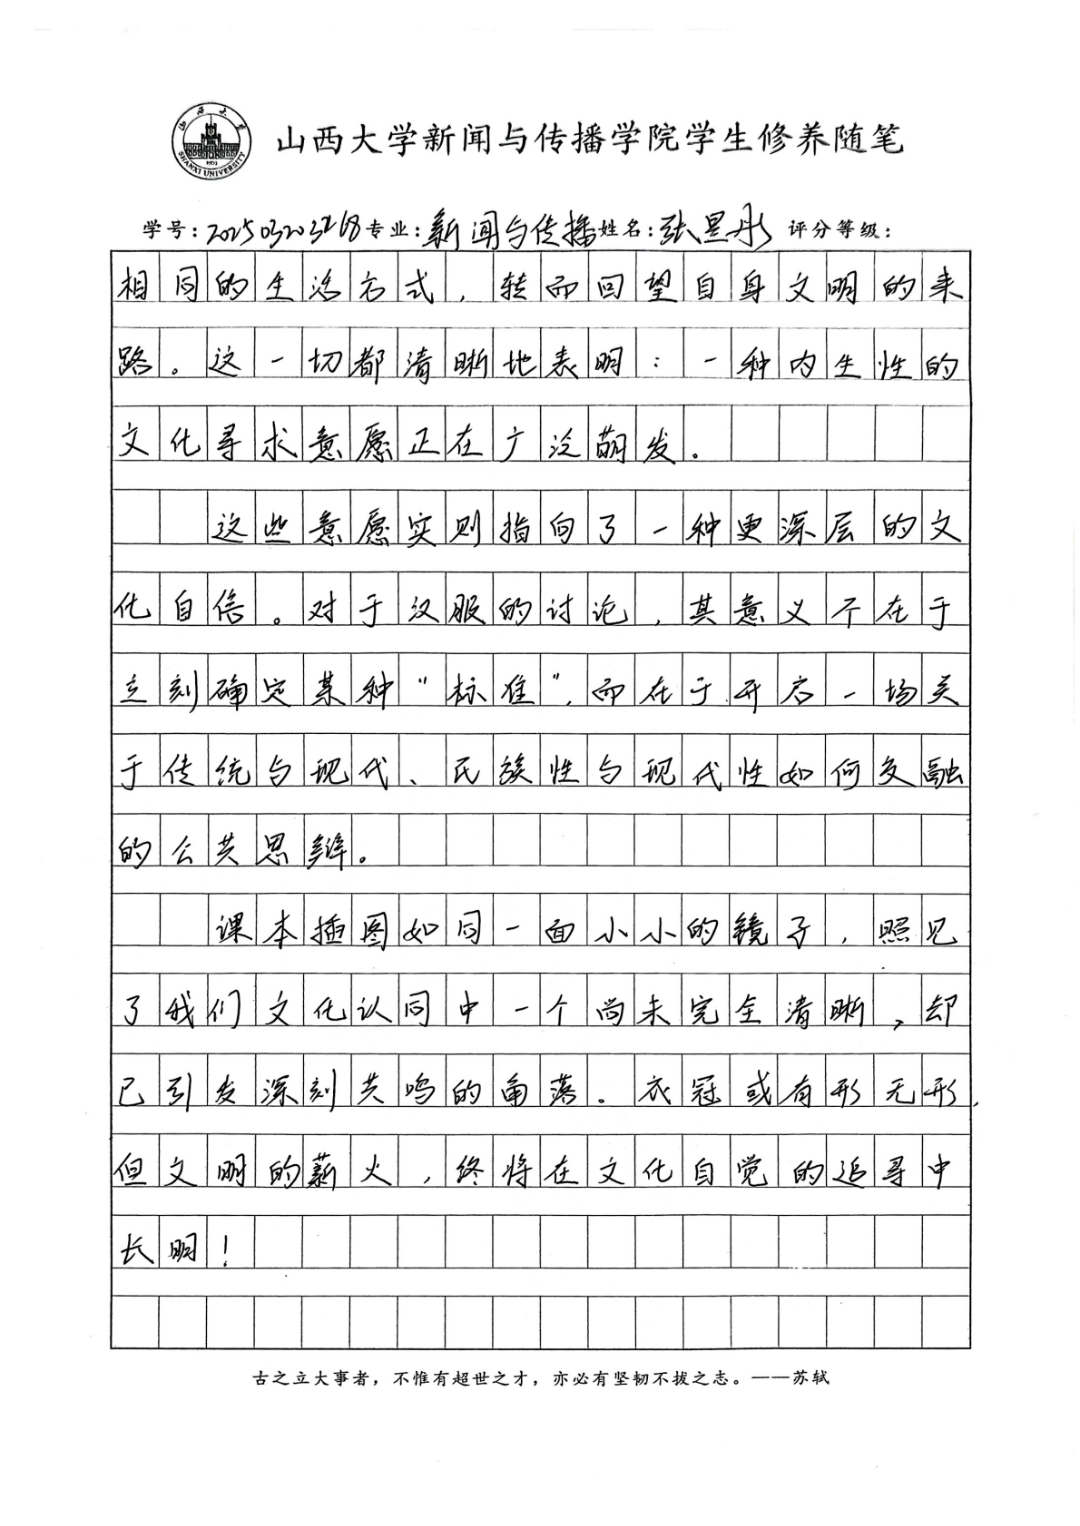 山西大学
SHANXI UNIVERSITY
1902
山西大学新闻与传播学院学生修养随笔
学号:202503203268 专业:新闻与传播 姓名:张昱彤 评分等级:
相同的生活方式，转而回望自身文明的来
路。这一切都清晰地表明：一种内生性的
文化寻求意愿正在广泛萌发。
这些意愿实则指向了一种更深层的文
化自信。对于汉服的讨论，其意义不在于
立刻确定某种“标准”，而在于开启一场关
于传统与现代、民族性与现代性如何交融
的公共思辩。
课本插图如同一面小小的镜子，照见
了我们文化认同中一个尚未完全清晰，却
已引发深刻共鸣的角落。衣冠或有形无形，
但文明的薪火，终将在文化自觉的追寻中
长明！
古之立大事者，不惟有超世之才，亦必有坚韧不拔之志。——苏轼